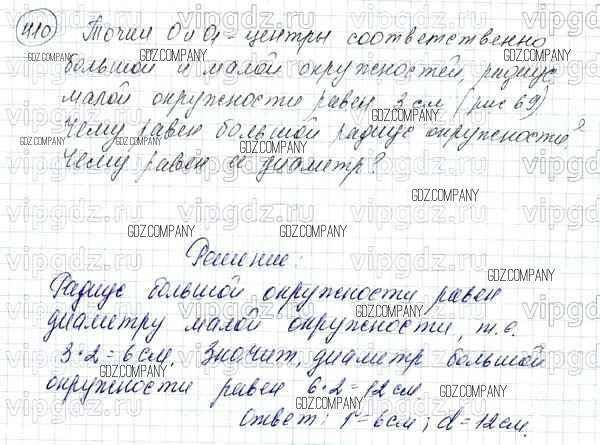 410 Точки О и О₁ - центры соответственно
большой и малой окружностей, радиус
малой окружности равен 3 см (рис 69)
Чему равен большой радиус окружности?
Чему равен ее диаметр?
Решение:
Радиус большой окружности равен
диаметру малой окружности, т.е.
3·2=6см. Значит, диаметр большой
окружности равен 6·2=12см
Ответ: r=6см; d=12см.